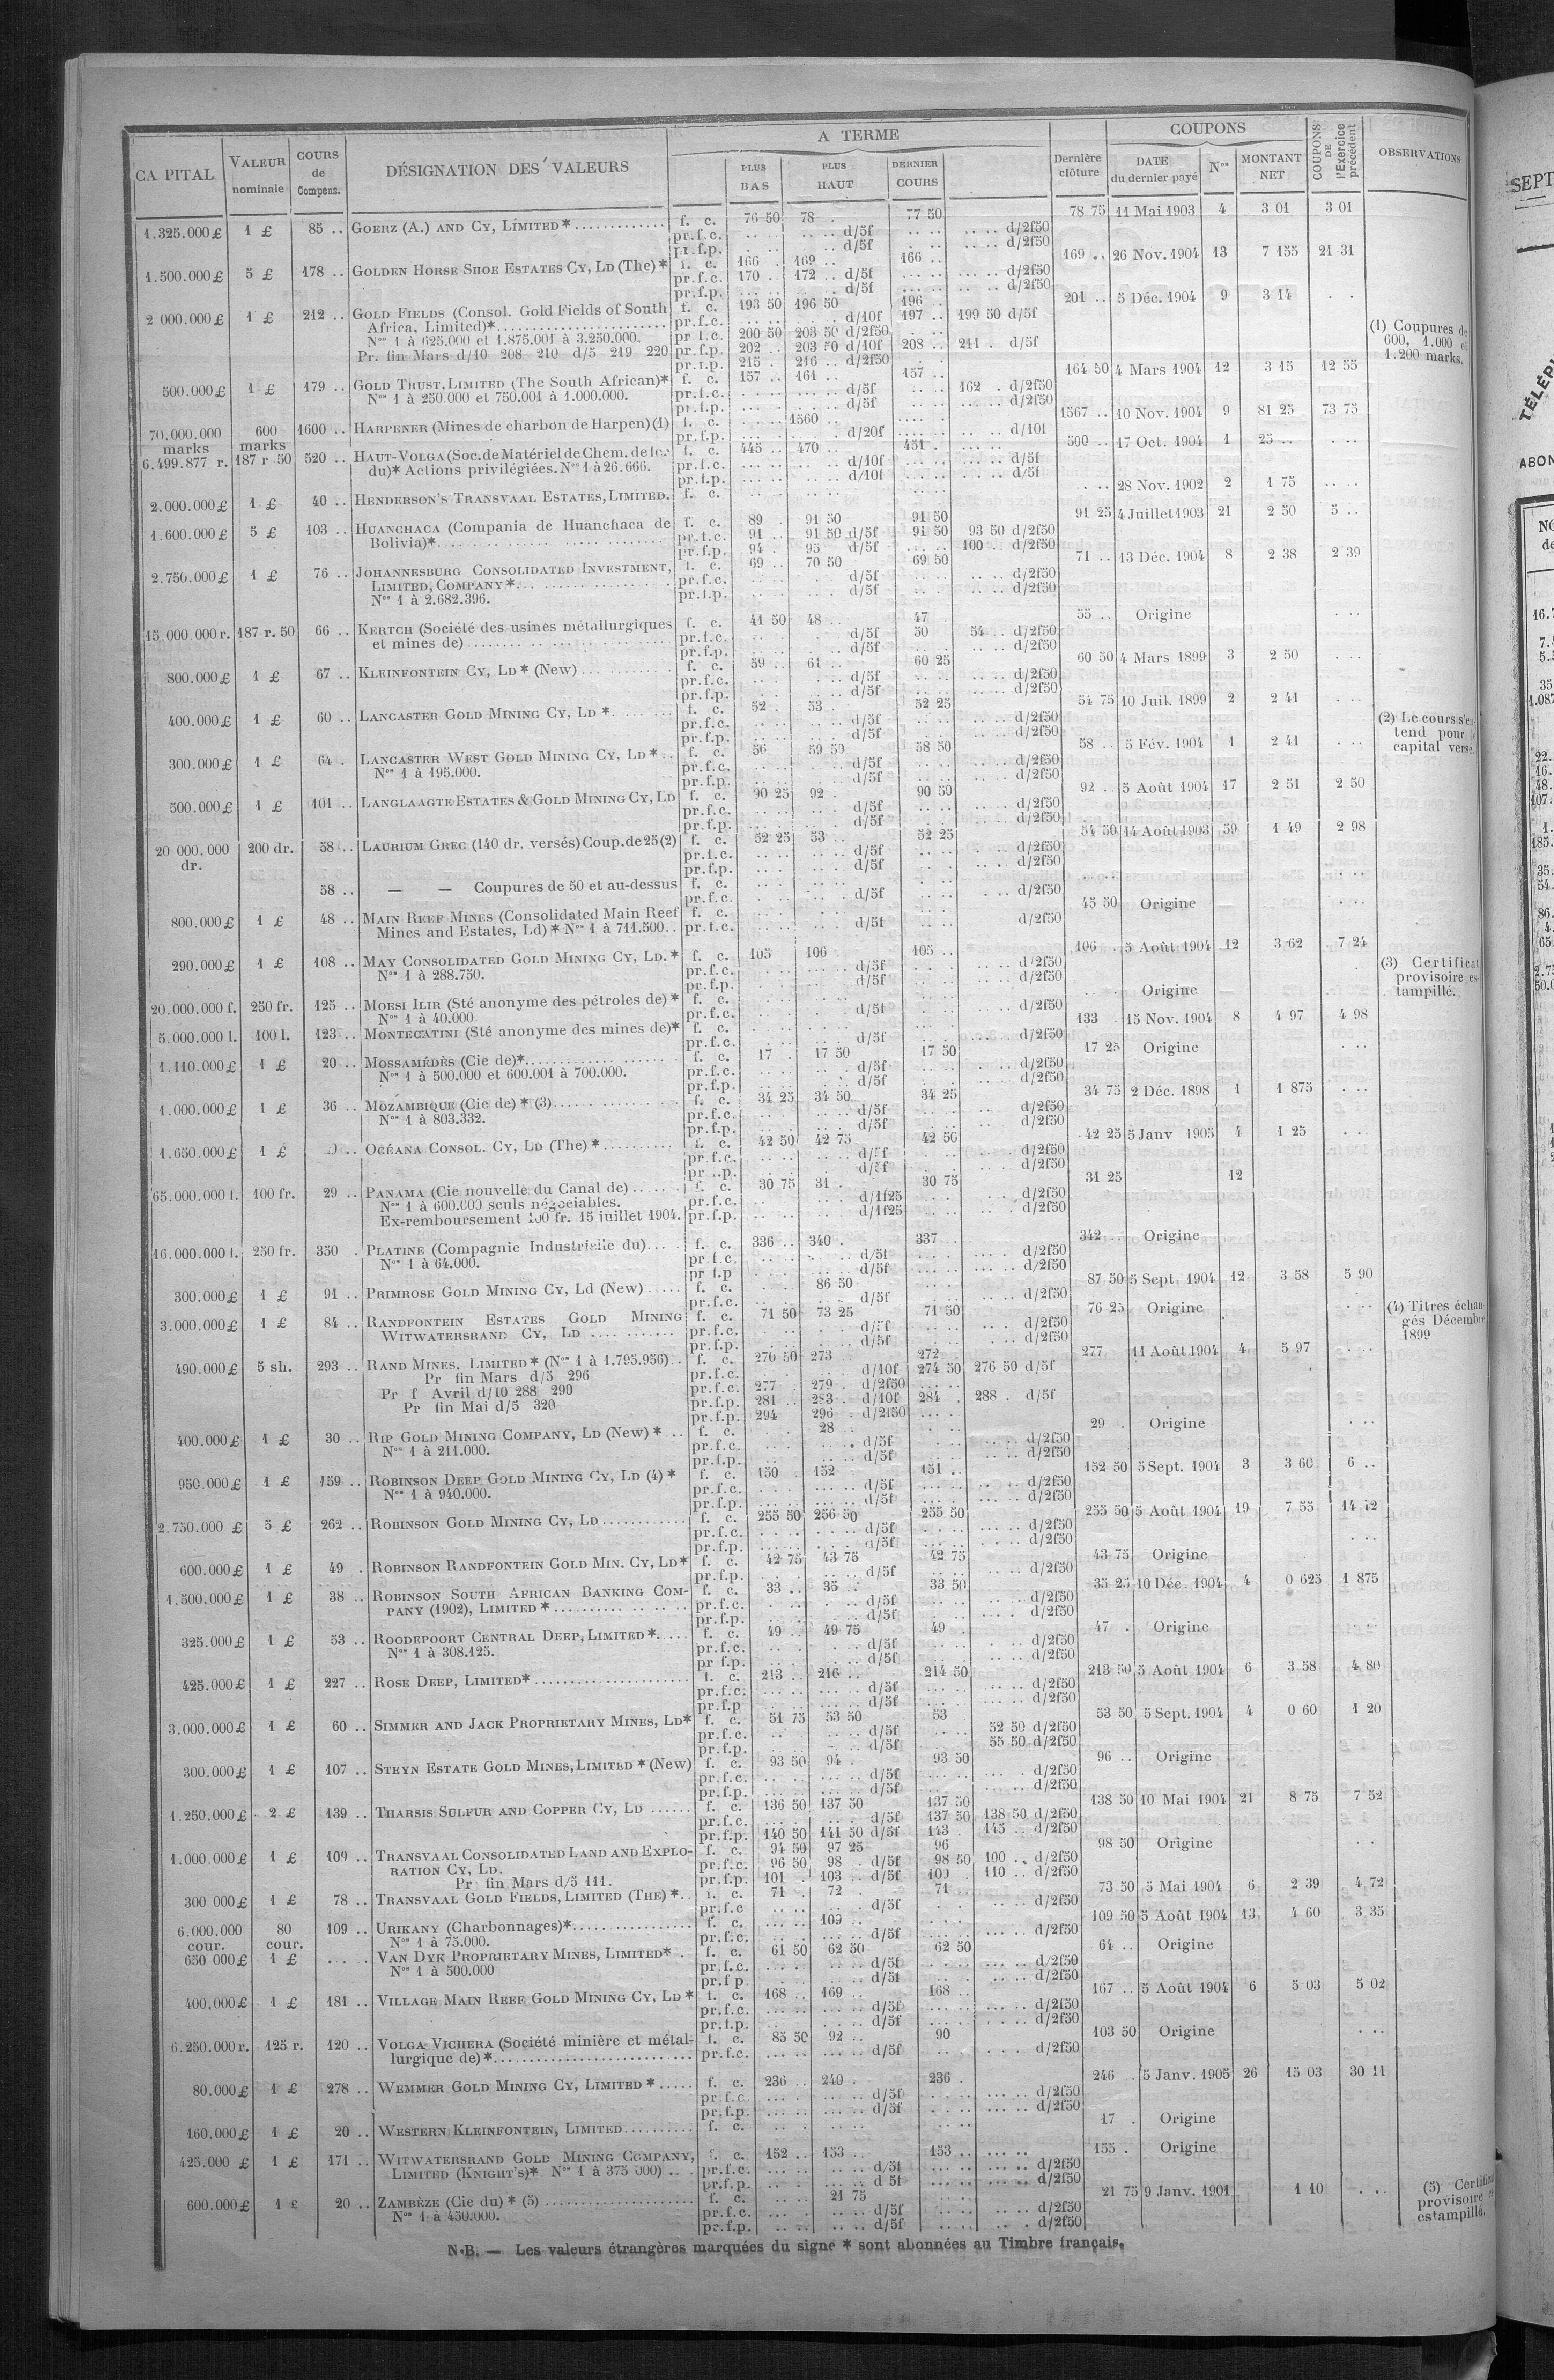 CAPITAL | VALEUR nominale | COURS de Compens. | DÉSIGNATION DES VALEURS | A TERME | PLUS BAS | PLUS HAUT | DERNIER COURS | Dernière clôture | COUPONS | DATE du dernier payé | Nos | MONTANT NET | COUPONS DE l'Exercice précédent | OBSERVATIONS
1.325.000 £ 1 £ 85 .. GOERZ (A.) AND CY, LIMITED * f. c. 76 50 78 . 77 50 78 75 11 Mai 1903 4 3 01 3 01
pr.f.c. d/5f d/2f50
pr.f.p. d/5f d/2f50
1.500.000 £ 5 £ 178 .. GOLDEN HORSE SHOE ESTATES CY, LD (The) * f. c. 166 . 169 .. 166 .. 169 .. 26 Nov. 1904 13 7 155 21 31
pr.f.c. 170 .. 172 .. d/5f d/2f50
pr.f.p. d/5f d/2f50
2 000.000 £ 1 £ 212 .. GOLD FIELDS (Consol. Gold Fields of South f. c. 193 50 196 50 196 .. 201 .. 5 Déc. 1904 9 3 14
Africa, Limited)* pr.f.c. d/10f 197 .. 199 50 d/5f
Nos 1 à 625.000 et 1.875.001 à 3.250.000. pr f.c. 200 50 203 50 d/2f50
Pr. fin Mars d/10 208 210 d/5 219 220 pr.f.p. 202 .. 203 50 d/10f 208 .. 211 . d/5f
pr.f.p. 215 . 216 .. d/2f50
(1) Coupures de
600, 1.000 et
1.200 marks.
500.000 £ 1 £ 179 .. GOLD TRUST, LIMITED (The South African)* f. c. 157 .. 161 .. 157 .. 164 50 4 Mars 1904 12 3 15 12 55
Nos 1 à 250.000 et 750.001 à 1.000.000. pr.f.c. d/5f 162 . d/2f50
pr.f.p. d/5f d/2f50
70.000.000 marks 600 marks 1600 .. HARPENER (Mines de charbon de Harpen) (1) f. c. 1560 .. 1567 .. 10 Nov. 1904 9 81 25 73 75
pr.f.p. d/20f d/10f
6.499.877 r. 187 r 50 520 .. HAUT-VOLGA (Soc. de Matériel de Chem. de fer f. c. 445 .. 470 .. 451 . 500 .. 17 Oct. 1904 1 25 ..
du)* Actions privilégiées. Nos 1 à 26.666. pr.f.c. d/10f d/5f
pr.f.p. d/10f d/5f
2.000.000 £ 1 £ 40 .. HENDERSON'S TRANSVAAL ESTATES, LIMITED. f. c. 28 Nov. 1902 2 1 75
1.600.000 £ 5 £ 103 .. HUANCHACA (Compania de Huanchaca de f. c. 89 . 91 50 91 50 91 25 4 Juillet 1903 21 2 50 5 ..
Bolivia)* pr.f.c. 91 .. 91 50 d/5f 91 50 93 50 d/2f50
pr.f.p. 94 . 95 d/5f 100 .. d/2f50
2.750.000 £ 1 £ 76 .. JOHANNESBURG CONSOLIDATED INVESTMENT, f. c. 69 .. 70 50 69 50 71 .. 13 Déc. 1904 8 2 38 2 39
LIMITED, COMPANY * pr.f.c. d/5f d/2f50
Nos 1 à 2.682.396. pr.f.p. d/5f d/2f50
15.000 000 r. 187 r. 50 66 .. KERTCH (Société des usines métallurgiques f. c. 41 50 48 . 47 . 55 .. Origine
et mines de) pr.f.c. d/5f 50 54 .. d/2f50
pr.f.p. d/5f d/2f50
800.000 £ 1 £ 67 .. KLEINFONTEIN CY, LD * (New) f. c. 59 .. 61 .. 60 25 60 50 4 Mars 1899 3 2 50
pr.f.c. d/5f d/2f50
pr.f.p. d/5f d/2f50
400.000 £ 1 £ 60 .. LANCASTER GOLD MINING CY, LD * f. c. 52 . 53 52 25 54 75 10 Juil. 1899 2 2 41
pr.f.c. d/5f d/2f50
pr.f.p. d/5f d/2f50
(2) Le cours s'en-
tend pour le
capital versé.
300.000 £ 1 £ 64 . LANCASTER WEST GOLD MINING CY, LD * f. c. 56 . 59 50 58 50 58 .. 5 Fév. 1904 1 2 41
Nos 1 à 195.000. pr.f.c. d/5f d/2f50
pr.f.p. d/5f d/2f50
500.000 £ 1 £ 101 .. LANGLAAGTE ESTATES & GOLD MINING CY, LD f. c. 90 25 92 . 90 50 92 . 5 Août 1904 17 2 51 2 50
pr.f.c. d/5f d/2f50
pr.f.p. d/5f d/2f50
20 000.000 dr. 200 dr. 58 .. LAURIUM GREC (140 dr. versés) Coup. de 25 (2) f. c. 52 25 53 .. 52 25 54 50 14 Août 1903 59 1 49 2 98
pr.f.c. d/5f d/2f50
pr.f.p. d/5f d/2f50
58 .. — — Coupures de 50 et au-dessus f. c.
pr.f.c. d/5f d/2f50
800.000 £ 1 £ 48 .. MAIN REEF MINES (Consolidated Main Reef f. c. 45 50 Origine
Mines and Estates, Ld) * Nos 1 à 711.500. pr.f.c. d/5f d/2f50
290.000 £ 1 £ 108 .. MAY CONSOLIDATED GOLD MINING CY, LD. * f. c. 105 106 105 .. 106 . 5 Août 1904 12 3 62 7 24
Nos 1 à 288.750. pr.f.c. d/5f d/2f50
pr.f.p. d/5f d/2f50
(3) Certificat
provisoire es-
tampillé.
20.000.000 f. 250 fr. 125 .. MOESI ILIR (Sté anonyme des pétroles de) * f. c. Origine
Nos 1 à 40.000. pr.f.c. d/5f d/2f50
5.000.000 l. 100 l. 123 .. MONTECATINI (Sté anonyme des mines de)* f. c. 133 . 15 Nov. 1904 8 4 97 4 98
pr.f.c. d/5f d/2f50
1.110.000 £ 1 £ 20 .. MOSSAMÉDÈS (Cie de)* f. c. 17 . 17 50 17 50 17 25 Origine
Nos 1 à 500.000 et 600.001 à 700.000. pr.f.c. d/5f d/2f50
pr.f.p. d/5f d/2f50
1.000.000 £ 1 £ 36 .. MOZAMBIQUE (Cie de) * (3) f. c. 34 25 34 50 34 25 34 75 2 Déc. 1898 1 1 875
Nos 1 à 803.332. pr.f.c. d/5f d/2f50
pr.f.p. d/5f d/2f50
1.650.000 £ 1 £ OCÉANA CONSOL. CY, LD (The) * f. c. 42 50 42 75 42 50 42 25 5 Janv 1905 4 1 25
pr.f.c. d/5f d/2f50
d/5f d/2f50
65.000.000 f. 100 fr. 29 .. PANAMA (Cie nouvelle du Canal de) f. c. 30 75 31 . 30 75 31 25 12
Nos 1 à 600.000 seuls négociables. pr.f.c. d/1f25 d/2f50
Ex-remboursement 100 fr. 15 juillet 1904. pr.f.p. d/1f25 d/2f50
16.000.000 f. 250 fr. 350 . PLATINE (Compagnie Industrielle du) f. c. 336 .. 340 . 337 .. 342 .. Origine
Nos 1 à 64.000. pr f.c. d/5f d/2f50
pr f.p d/5f d/2f50
300.000 £ 1 £ 91 .. PRIMROSE GOLD MINING CY, Ld (New) f. c. 86 50 87 50 5 Sept. 1904 12 3 58 5 90
pr.f.c. d/5f d/2f50
3.000.000 £ 1 £ 84 .. RANDFONTEIN ESTATES GOLD MINING f. c. 71 50 73 25 71 50 76 25 Origine
WITWATERSRAND CY, LD pr.f.c. d/5f d/2f50
pr.f.p. d/5f d/2f50
(4) Titres échan-
gés Décembre
1899
490.000 £ 5 sh. 293 .. RAND MINES, LIMITED * (Nos 1 à 1.795.956) f. c. 270 50 273 272 277 11 Août 1904 4 5 97
Pr fin Mars d/5 296 pr.f.c. d/10f 274 50 276 50 d/5f
Pr f Avril d/10 288 290 pr.f.c. 277 . 279 . d/2f50
Pr fin Mai d/5 320 pr.f.p. 281 .. 283 . d/10f 284 . 288 . d/5f
pr.f.p. 294 296 . d/2f50
400.000 £ 1 £ 30 .. RIP GOLD MINING COMPANY, LD (New) * f. c. 28 .. 29 . Origine
Nos 1 à 211.000. pr.f.c. d/5f d/2f50
pr.f.p. d/5f d/2f50
950.000 £ 1 £ 159 .. ROBINSON DEEP GOLD MINING CY, LD (4) * f. c. 150 . 152 151 .. 152 50 5 Sept. 1904 3 3 60 6 ..
Nos 1 à 940.000. pr.f.c. d/5f d/2f50
pr.f.p. d/5f d/2f50
2.750.000 £ 5 £ 262 .. ROBINSON GOLD MINING CY, LD f. c. 255 50 256 50 255 50 255 50 5 Août 1904 19 7 55 14 42
pr.f.c. d/5f d/2f50
pr.f.p. d/5f d/2f50
600.000 £ 1 £ 49 . ROBINSON RANDFONTEIN GOLD MIN. CY, LD * f. c. 42 75 43 75 42 75 43 75 Origine
pr.f.p. d/5f d/2f50
1.500.000 £ 1 £ 38 .. ROBINSON SOUTH AFRICAN BANKING COM- f. c. 33 .. 35 .. 33 50 35 25 10 Déc. 1904 4 0 625 1 875
PANY (1902), LIMITED * pr.f.c. d/5f d/2f50
pr.f.p. d/5f d/2f50
325.000 £ 1 £ 53 .. ROODEPOORT CENTRAL DEEP, LIMITED * f. c. 49 .. 49 75 49 . 47 . Origine
Nos 1 à 308.125. pr.f.c. d/5f d/2f50
pr f.p. d/5f d/2f50
425.000 £ 1 £ 227 .. ROSE DEEP, LIMITED* f. c. 213 .. 216 .. 214 50 213 50 5 Août 1904 6 3 58 4 80
pr.f.c. d/5f d/2f50
pr.f.p d/5f d/2f50
3.000.000 £ 1 £ 60 .. SIMMER AND JACK PROPRIETARY MINES, LD* f. c. 51 75 53 50 53 53 50 5 Sept. 1904 4 0 60 1 20
pr.f.c. d/5f 52 50 d/2f50
pr.f.p. d/5f 55 50 d/2f50
300.000 £ 1 £ 107 .. STEYN ESTATE GOLD MINES, LIMITED * (New) f. c. 93 50 94 . 93 50 96 .. Origine
pr.f.c. d/5f d/2f50
pr.f.p. d/5f d/2f50
1.250.000 £ 2 £ 139 .. THARSIS SULFUR AND COPPER CY, LD f. c. 136 50 137 50 137 50 138 50 10 Mai 1904 21 8 75 7 52
pr.f.c. d/5f 137 50 138 50 d/2f50
pr.f.p. 140 50 141 50 d/5f 143 . 145 .. d/2f50
1.000.000 £ 1 £ 109 .. TRANSVAAL CONSOLIDATED LAND AND EXPLO- f. c. 94 50 97 25 96 98 50 Origine
RATION CY, LD. pr.f.c. 96 50 98 . d/5f 98 50 100 .. d/2f50
Pr fin Mars d/5 111. pr.f.p. 101 . 103 .. d/5f 109 . 110 .. d/2f50
300 000 £ 1 £ 78 .. TRANSVAAL GOLD FIELDS, LIMITED (THE) * f. c. 71 . 72 . 71 .. 73 50 5 Mai 1904 6 2 39 4 72
pr.f.c d/5f d/2f50
6.000.000 cour. 80 cour. 109 .. URIKANY (Charbonnages)* f. c. 109 .. 109 50 5 Août 1904 13 4 60 3 35
Nos 1 à 75.000. pr.f.c. d/5f d/2f50
650 000 £ 1 £ .... VAN DYK PROPRIETARY MINES, LIMITED* f. c. 61 50 62 50 62 50 64 .. Origine
Nos 1 à 500.000 pr.f.c. d/5f d/2f50
pr.f p. d/5f d/2f50
400.000 £ 1 £ 181 .. VILLAGE MAIN REEF GOLD MINING CY, LD * f. c. 168 .. 169 .. 168 .. 167 .. 5 Août 1904 6 5 03 5 02
pr.f.c. d/5f d/2f50
pr.f.p. d/5f d/2f50
6.250.000 r. 125 r. 120 .. VOLGA VICHERA (Société minière et métal- f. c. 85 50 92 .. 90 103 50 Origine
lurgique de)* pr.f.c. d/5f d/2f50
80.000 £ 1 £ 278 .. WEMMER GOLD MINING CY, LIMITED * f. c. 236 .. 240 . 236 . 246 .. 5 Janv. 1905 26 15 03 30 11
pr.f.c. d/5f d/2f50
pr.f.p. d/5f d/2f50
160.000 £ 1 £ 20 .. WESTERN KLEINFONTEIN, LIMITED f. c. 17 . Origine
425.000 £ 1 £ 171 .. WITWATERSRAND GOLD MINING COMPANY, f. c. 152 .. 153 .. 153 .. 155 . Origine
LIMITED (KNIGHT'S)* Nos 1 à 375 000) pr.f.c. d/5f d/2f50
pr.f.p. d 5f d/2f50
600.000 £ 1 £ 20 .. ZAMBÈZE (Cie du) * (5) f. c. 21 75 21 75 9 Janv. 1901 1 10
Nos 1 à 450.000. pr.f.c. d/5f d/2f50
pr.f.p. d/5f d/2f50
(5) Certificat
provisoire
estampillé.
N.B. — Les valeurs étrangères marquées du signe * sont abonnées au Timbre français.
SEPT
TÉLÉPH
ABON